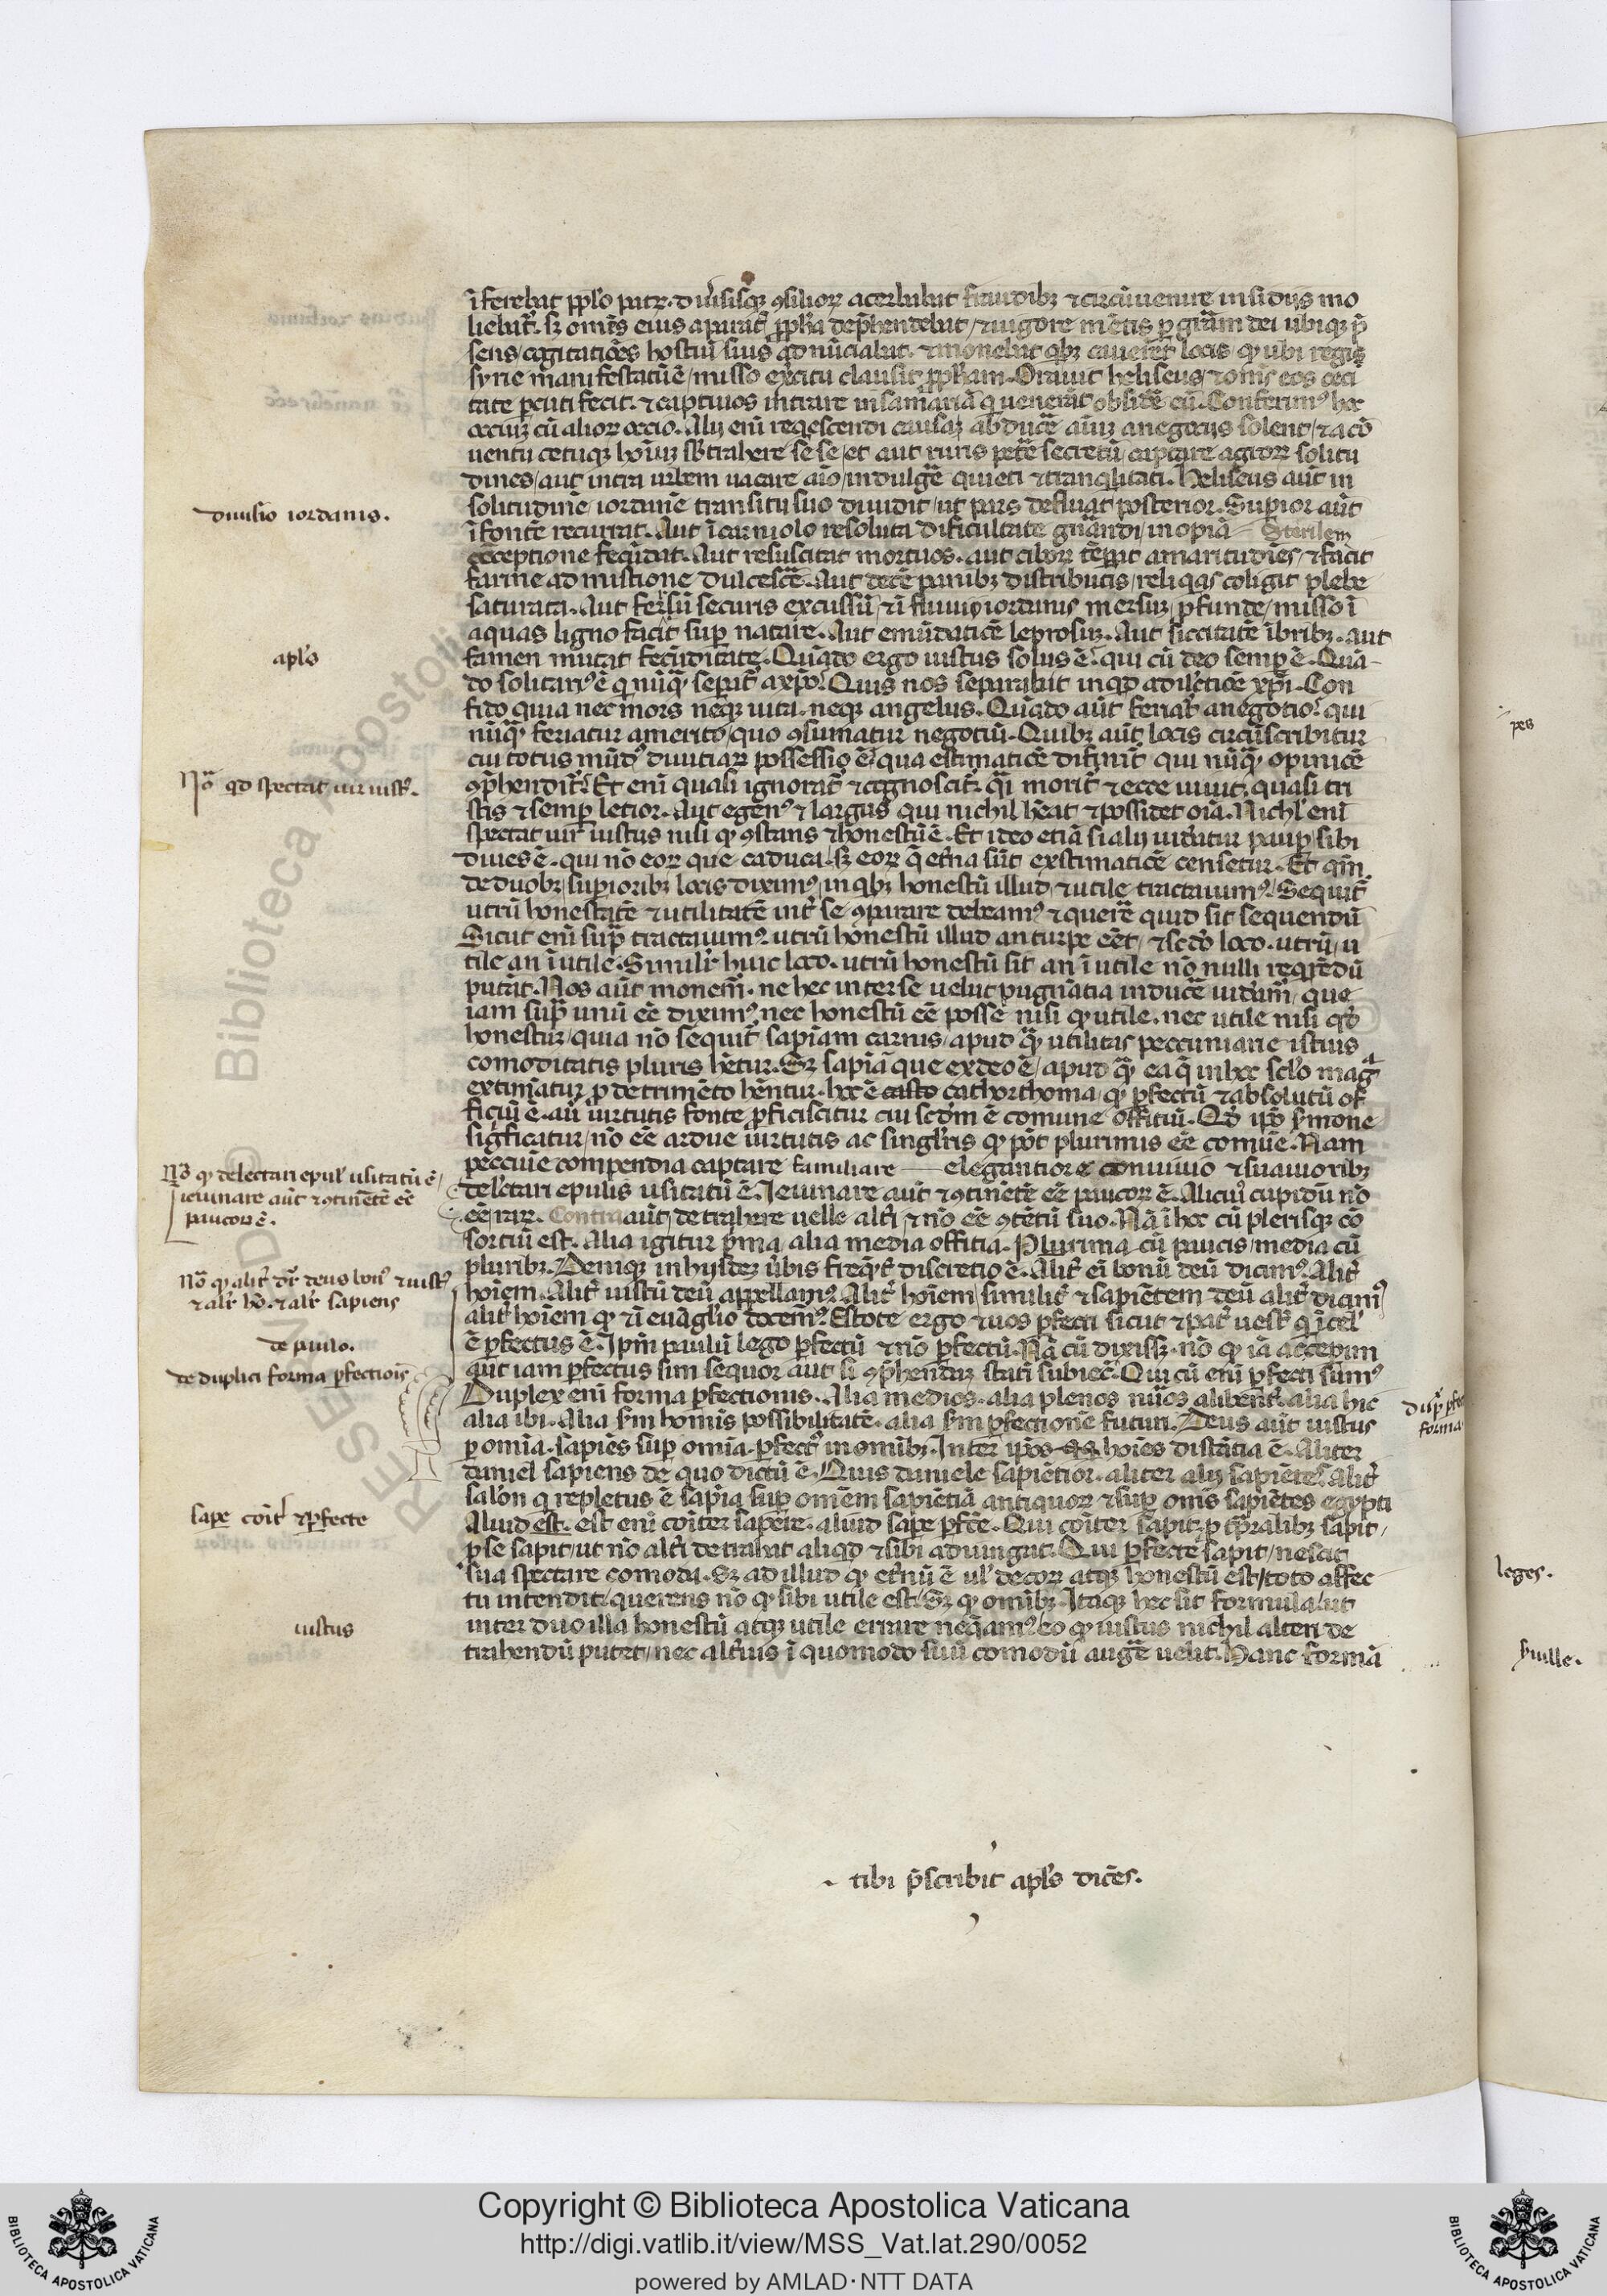 īferebat pplō patrū. diūsisqꝫ ꝯsiliorꝫ acerbabat fraudibꝫ ⁊ circūuenire insidijs mo
liebat̄. sꝫ omēs eius aparat⁹ ppha dep̄hendebat / ⁊ uigore mētis ꝑ grām dei ubiqꝫ p̄
sens / cogitatiōes hostiū suis ad nūciabat. ⁊ monebat qbꝫ cauerēt locis. qđ ubi regi
syrie manifestatū ē / misso exc̄itu clausit ppham. Orauit heliseus / ⁊ omēs eos ceci
tate ꝑcuti fecit. ⁊ captiuos intrare in samariā q uenerāt obsidē eū. Conferim⁹ hoc
ociuꝫ cū aliorꝫ ocio. Alij enī reqescendi causaꝫ abducē aīuꝫ a negocijs solent / ⁊ a cō
uentu cetuqꝫ hoīuꝫ sbtrahere se se / et aut ruris petē secretū / captare agrorꝫ solitu
dines / aut intra urbem uacare aīo / indulgē quieti ⁊ tranqlitati. Heliseus aūt in
solitudine / iordanē transitu suo diuidit / ut pars defluat posterior. Supior aūt
ī fontē recurrat. Aut ī carmolo resoluta dificultate gn̄andi / inopiā — Sterilem
cōceptione fecūdat. Aut resuscitat mortuos. aut ciborꝫ tēperat amaritudies / ⁊ facit
farine ad mistione dulcescē. Aut decē panibꝫ distributis / reliqas coligit plebe
saturata. Aut ferrū securis excussū / ⁊ ī fluuio iordanis mersuꝫ ꝓfunde / misso ī
aquas ligno facit sup natare. Aut emūdatiōe leprosuꝫ. Aut siccitatē ībribꝫ. aut
famen mutat fecūditate. Quādo ergo iustus solus ē / qui cū deo semꝑ ē. Quā-
do solitari⁹ ē q nūqꝫ seꝑat̄ a xpō. Quis nos separabit inqđ a dilectiōe xpī. Con
fido quia nec mors neqꝫ uita. neqꝫ angelus. Quādo aūt feriat̄ a negotio / qui
nūqꝫ feriatur a merito / quo ꝯsumatur negotiū. Quibꝫ aūt locis circūscribitur
cui totus mūd⁹ diuitiarꝫ possessio ē / qua estimatiōe difinit̄ qui nūqꝫ opiniōe
ꝯp̄hendit̄. Et enī quasi ignorat̄ ⁊ cognoscit̄. qͣi morit̄ ⁊ ecce uiuit. quasi tri
stis ⁊ semꝑ letior. Aut egen⁹ ⁊ largus qui nichil hēat ⁊ possidet oīa. Nichl enī
spectat uir iustus nisi qđ ꝯstans ⁊ honestū ē. Et ideo etiā si alij uideatur pauꝑ / sibi
diues ē. qui nō eorꝫ que caduca. sꝫ eorꝫ q̄ et̄na sūt existimatiōe censetur. Et qm̄
de duobꝫ / supioribꝫ locis diximꝰ / in qbꝫ honestū illud / ⁊ utile tractauimꝰ / Sequit̄
utrū honestatē ⁊ utilitatē int̄ se ꝯparare debeamꝰ / ⁊ querē quid sit sequendū
Sicut enī supͣ tractauimꝰ. utrū honestū illud an turpe eēt / ⁊ scđo loco. utrū / u
tile an ī utile. Similr̄ huic loco. utrū honestū sit an ī utile nō nulli reqrēdū
putāt. Nos aūt monem̄. ne hec inter se uelut pugnātia inducē uideam̄ / que
iam supͣ unū eē diximꝰ. nec honestū eē posse nisi qđ utile. nec utile nisi qđ
honestuꝫ / quia nō sequit̄ sapīam carnis / apud qͣꝫ utilitas peccuniarie istius
comoditatis pluris hētur. Sꝫ sapīā que ex deo ē / apud qͣꝫ ea q̄ in hoc sclo mag̃
extimātur / ꝓ detrimēto hēntur. hoc ē casto cathorthoma / qđ ꝑfectū ⁊ absolutū of
ficiū ē. au uirtutis fonte ꝓficiscitur cui scđm ē comune offitiū. Qđ ipō s̄mone
sigficatur / nō eē ardue uirtutis ac singlris / qđ pōt plurimis eē comūe. Nam
peccuīe compendia captare familiare — elegantiore conuiuio ⁊ suauioribꝫ
delectari epulis usitatū ē. Ieiunare aūt ⁊ ꝯtinētē eē paucorꝫ ē. Alicui⁹ cupidū nō
eē / rarꝫ. Contra aūt / detrahere uelle alt̄i / ⁊ nō eē ꝯtētū suo. Nā ī hoc cū plerisqꝫ cō
sortiū est. Alia igitur pͥma / alia media offitia. Plurima cū paucis / media cū
pluribꝫ. Deniqꝫ in hysdeꝫ u̇bis freqn̄t̄ discretio ē. Alit̄ eī bonū deū dicimꝰ. Alit̄
hoīem. Alit̄ iustū deū appellamꝰ. Alit̄ hoīem / similit̄ ⁊ sapiētem deū alit̄ dicimꝰ /
alit̄ hoīem qđ ⁊ ī euāglio docem̄. Estote ergo ⁊ uos ꝑfecti sicut ⁊ pat̄ uest̄ q ī cel̄
ē ꝑfectus ē. Ipm̄ paulū lego ꝑfectū ⁊ nō ꝑfectū. Nā cū dixissꝫ. nō qđ iā acceꝑim
aut iam ꝑfectus sim sequor aut si ꝯp̄hendaꝫ stati subiec̄. Qui cū enī ꝑfecti sumꝰ
Duplex enī forma ꝑfectionis. Alia medios. alia plenos nūos alibent̄. alia hic
alia ibi. Alia s̄m hominīs possibilitatē. alia s̄m ꝑfectionē futuri. Deus aūt iustus
ꝑ omīa. sapiēs suꝑ omīa. ꝑfect⁹ in omībꝫ. Inter ipōs hoīes distātia ē. Aliter
daniel sapiens de quo dictū ē. Quis daniele sapiētior. aliter alij sapiētes. Alit̄
salon q repletus ē sapīa suꝑ omēm sapiētiā antiquorꝫ ⁊ suꝑ omīs sapiētes egypti
Aliud est. est enī coīter sapere. aliud sape ꝑfc̄e. Qui coīter sapit. ꝑ tp̄ralibꝫ sapit /
ꝑ se sapit / ut nō alt̄i detrahat aliqđ ⁊ sibi adiungat. Qui ꝑfecte sapit / nescit
sua spectare comoda. sꝫ ad illud qđ et̄nū ē ul̄ decorꝫ atqꝫ honestū est / toto affec
tu intendit / querens nō qđ sibi utile est / sꝫ qđ omībꝫ. Itaqꝫ hec sit formula / ut
inter duo illa honestū atqꝫ utile errare neqͣamꝰ / eo qđ iustus nichil alteri de
trahendū putet / nec alt̄ius ī quomodo suū comodū augē uelit. Hanc formā
tibi p̄scribit apls dicēs.
diuisio iordanis.
apls
Nō qđ spectat uir iust̄.
Nō qđ delectari epul̄ usitatū ē /
ieiunare aūt ⁊ ꝯtinētē eē
paucorꝫ ē.
Nō qđ alit̄ dr̄ deus bon⁹ ⁊ iust⁹
⁊ alr̄ hō. ⁊ alr̄ sapiens
de paulo.
de duplici forma ꝑfectiōis
dupͣ ꝑfe
forma.
sape coīt̄ ⁊ ꝑfecte
iustus
pes
leges.
s̄uille.
Copyright © Biblioteca Apostolica Vaticana
http://digi.vatlib.it/view/MSS_Vat.lat.290/0052
powered by AMLAD·NTT DATA
BIBLIOTECA APOSTOLICA VATICANA
BIBLIOTECA APOSTOLICA VATICANA